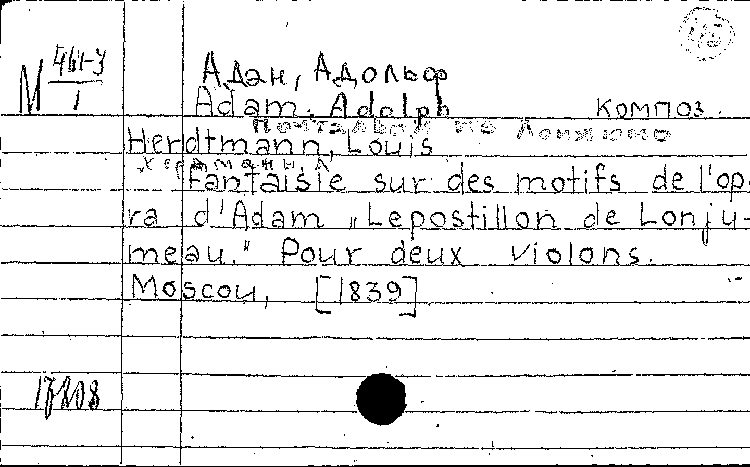 45
М 461-3
1
Адан, Адольф
Adam, Adolph композ.
Почтальон из Лонжюмо
Herdtmann, Louis
Fantaisie sur des motifs de l'op-
ra d'Adam „Lepostillon de Lonju-
meau." Pour deux violons.
Moscou, [1839]
17808